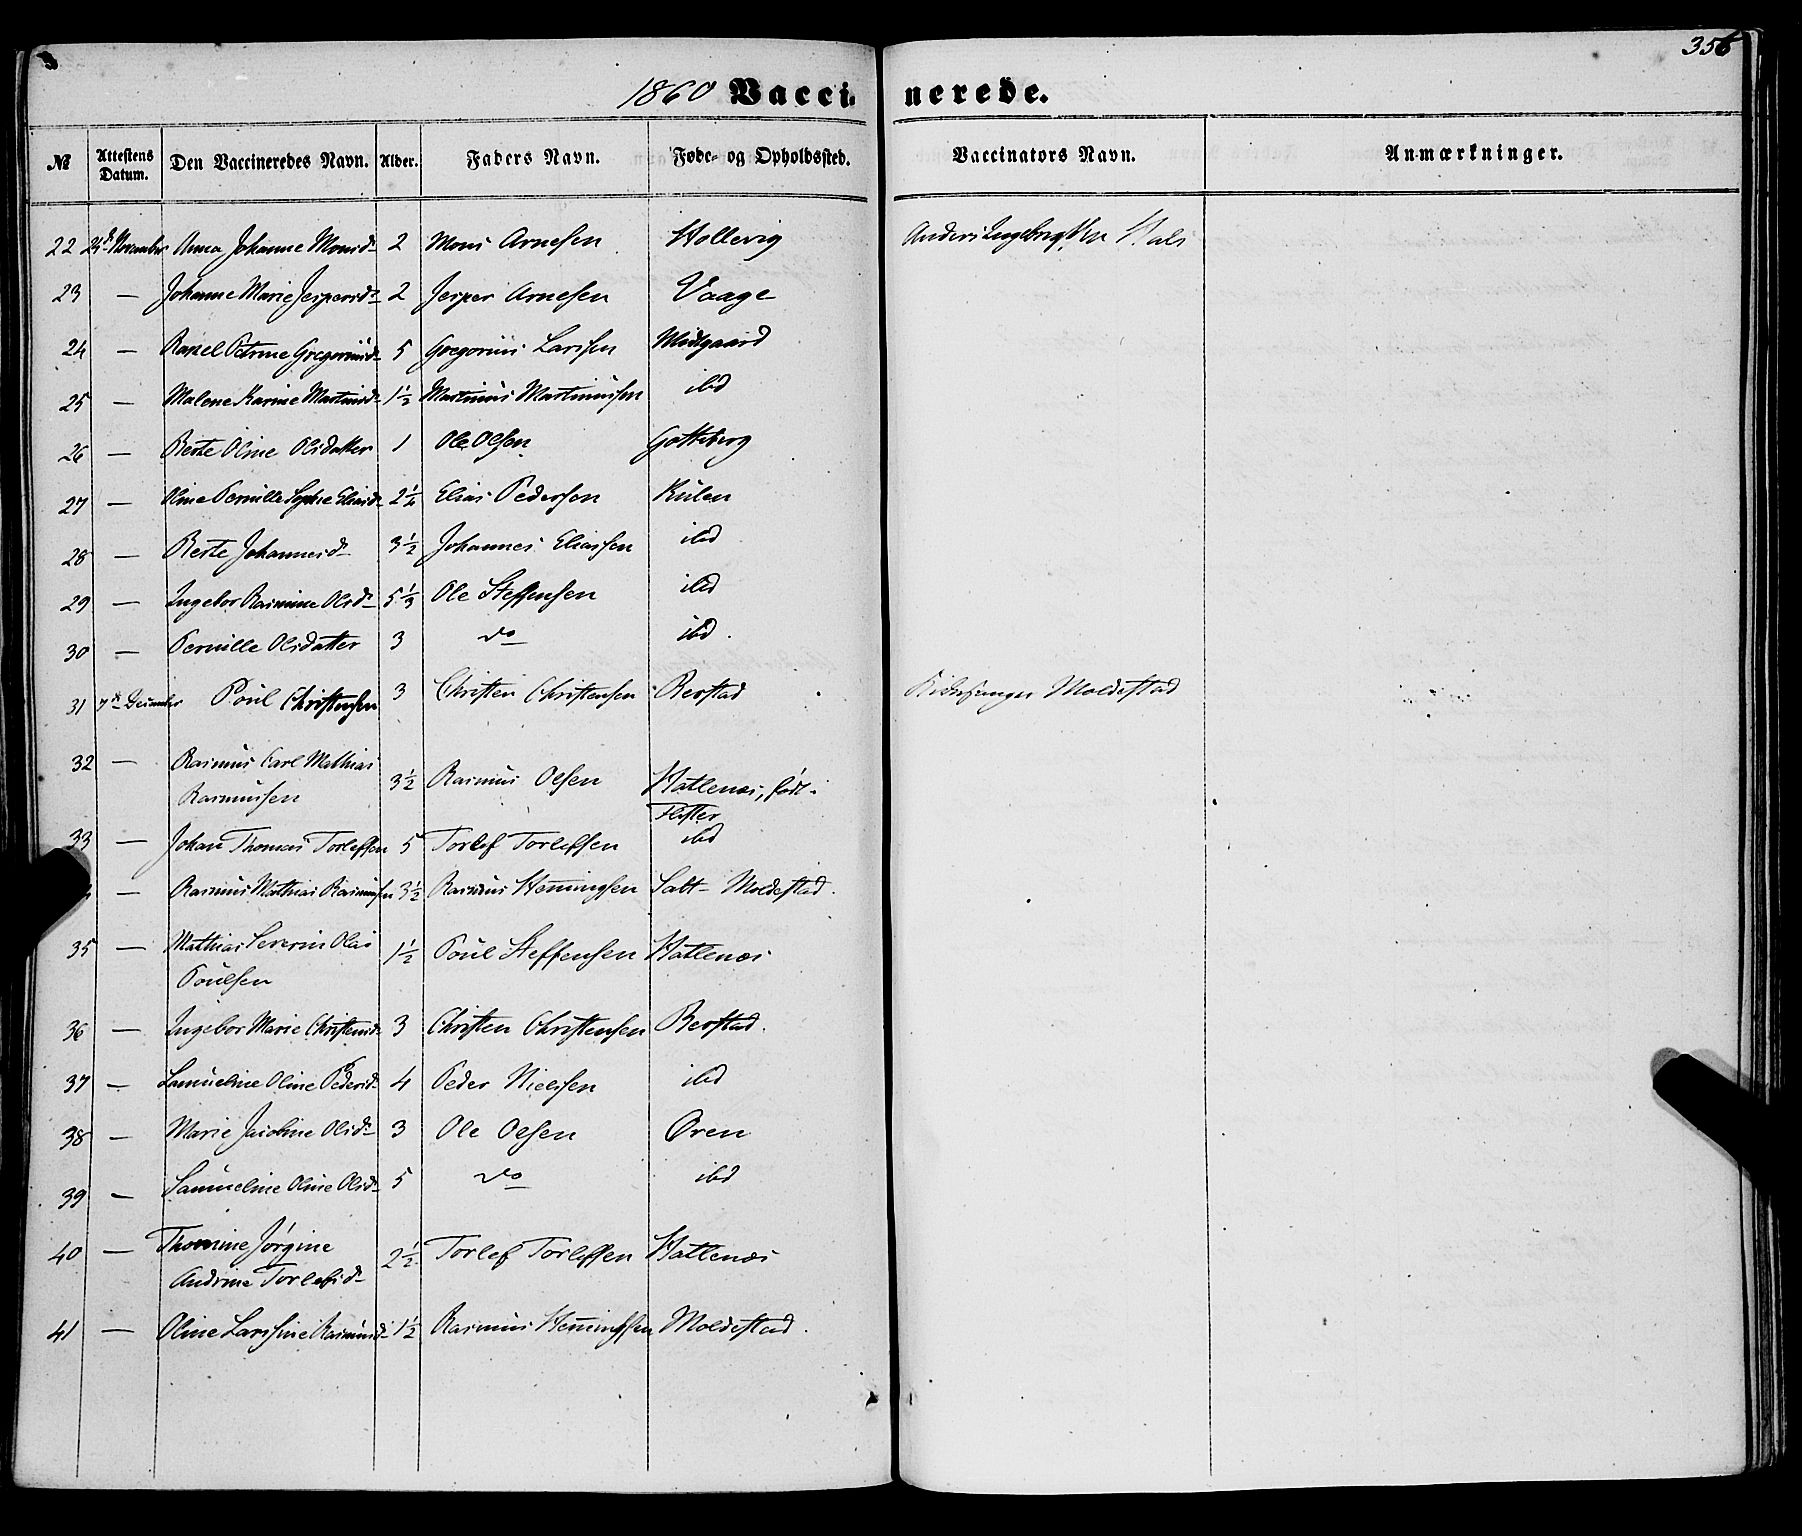 356
1860 Vaccinerede.
№ Attestens Datum. Den Vaccineredes Navn. Alder. Faders Navn. Føde- og Opholdssted. Vaccinators Navn. Anmærkninger.
22 24de November Anna Johanne Monsd. 2 Mons Arnesen Hollevig Anders
23 — Johanne Marie Jespersd. 2 Jesper Arnesen Vaage
24 — Rakel Petrine Gregoriusd. 5 Gregorius Larssen Midtgaard
25 — Malene Karine Martinusd. 1½ Martinus Martinussen ibd
26 — Berte Oline Olsdatter 1 Ole Olsen Gotteberg
27 — Oline Pernille Sophie Eliasd. 2½ Elias Pedersen Kulen
28 — Berte Johannesd. 3½ Johannes Eliassen ibd
29 — Ingebor Rasmine Olsd. 5⅓ Ole Steffensen ibd
30 — Pernille Olsdatter 3 do ibd.
31 7de December Poul Christensen 3 Christen Christensen Berstad Kirkesanger Moldestad
32 — Rasmus Carl Mathias
Rasmussen 3½ Rasmus Olsen Hatlenæs, født
33 — Johan Thomas Torlefsen 5 Torlef Torlefsen ibd
— Rasmus Mathias Rasmussen 3½ Rasmus Hemingsen Moldestad.
35 — Mathias Severin Olai
Poulsen 1½ Poul Steffensen Hatlenæs
36 — Ingebor Marie Christensd. 3 Christen Christensen Berstad.
37 — Samueline Oline Pedersd. 4 Peder Nielssen ibd
38 — Marie Jacobine Olsd. 3 Ole Olsen Øren
39 — Samueline Oline Olsd. 5 do ibd
40 — Thomine Jørgine
Andrine Torlefsd. 2½ Torlef Torlefsen Hatlenæs
41 — Oline Larssine Rasmusd. 1½ Rasmus Hemingsen Moldestad.